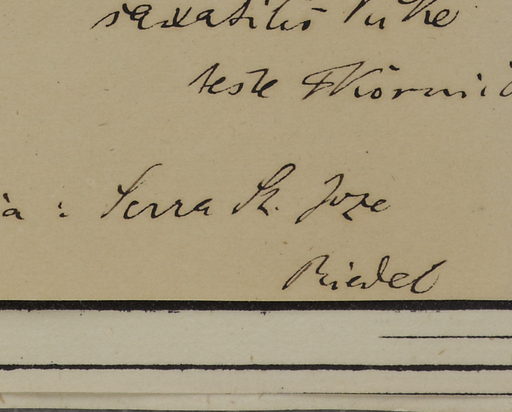 saxatilis Ruhl
teste F Körnick
ia : Serra St. Joze
Riedel